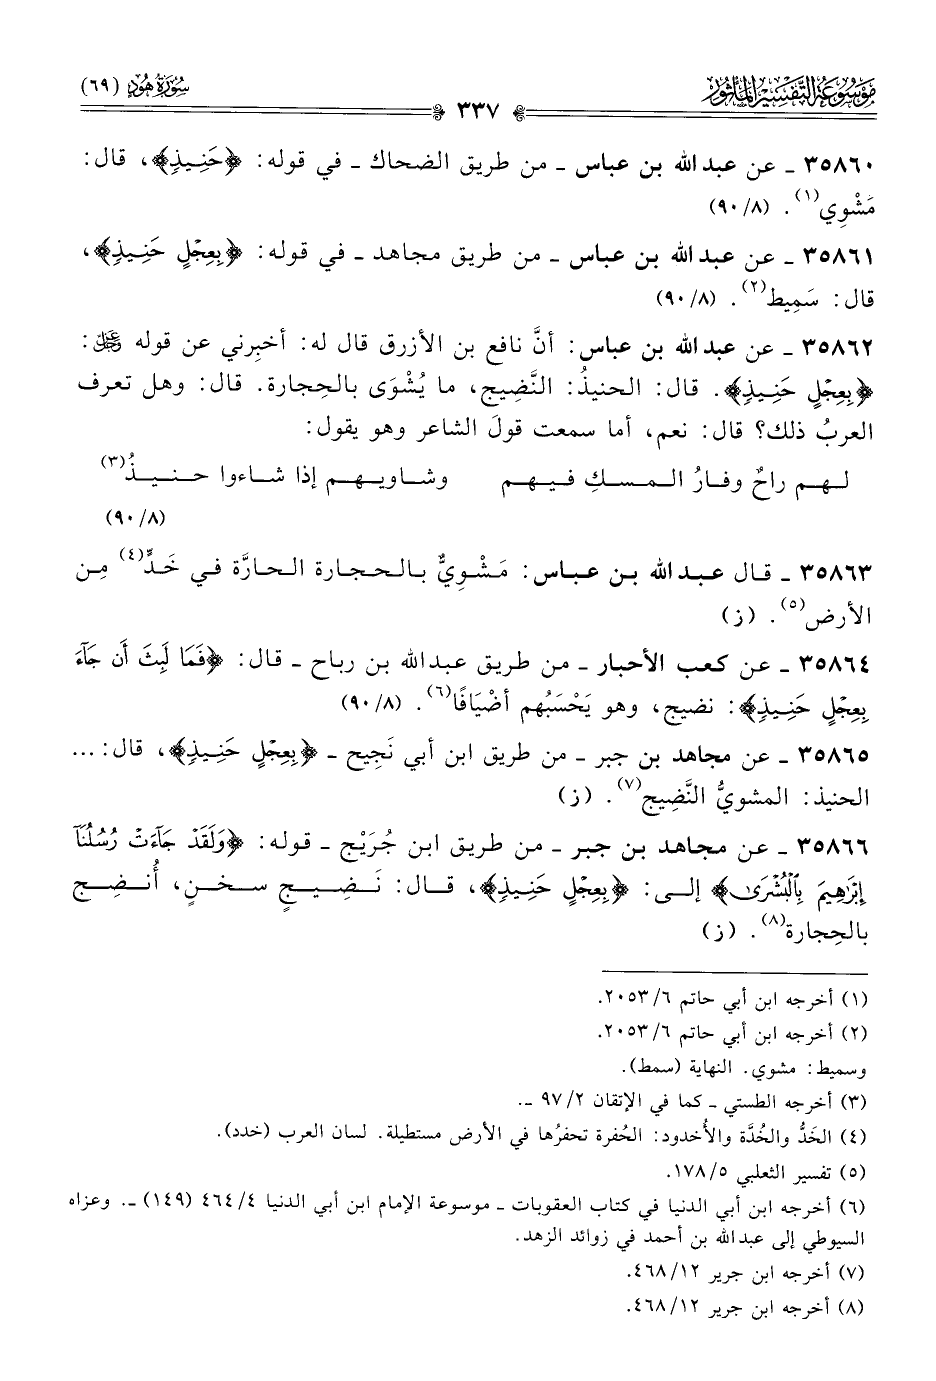 مَوْسُوعَةُ التَّفْسِيْرِ المَأْثُور
٣٣٧
سُورَةُ هُودٍ (٦٩)
٣٥٨٦٠ ـ عن عبد الله بن عباس ـ من طريق الضحاك ـ في قوله: ﴿حَنِيذٍ﴾، قال:
مَشْوِي(١). (٨/ ٩٠)
٣٥٨٦١ ـ عن عبد الله بن عباس ـ من طريق مجاهد ـ في قوله: ﴿بِعِجْلٍ حَنِيذٍ﴾،
قال: سَمِيط(٢). (٨/ ٩٠)
٣٥٨٦٢ ـ عن عبد الله بن عباس: أنَّ نافع بن الأزرق قال له: أخبِرني عن قوله عَزَّ وَجَلَّ:
﴿بِعِجْلٍ حَنِيذٍ﴾. قال: الحنيذُ: النَّضِيج، ما يُشْوَى بالحِجارة. قال: وهل تعرف
العربُ ذلك؟ قال: نعم، أما سمعت قولَ الشاعر وهو يقول:
لهم راحٌ وفارُ المسكِ فيهم وشاويهم إذا شاءوا حنيذُ(٣)
(٨/ ٩٠)
٣٥٨٦٣ ـ قال عبد الله بن عباس: مَشْوِيٌّ بالحجارة الحارَّة في خَدٍّ(٤) مِن
الأرض(٥). (ز)
٣٥٨٦٤ ـ عن كعب الأحبار ـ من طريق عبد الله بن رباح ـ قال: ﴿فَمَا لَبِثَ أَن جَآءَ
بِعِجْلٍ حَنِيذٍ﴾: نضيج، وهو يَحْسَبُهم أضْيَافًا(٦). (٨/ ٩٠)
٣٥٨٦٥ ـ عن مجاهد بن جبر ـ من طريق ابن أبي نَجِيح ـ ﴿بِعِجْلٍ حَنِيذٍ﴾، قال: ...
الحنيذ: المشويُّ النَّضِيج(٧). (ز)
٣٥٨٦٦ ـ عن مجاهد بن جبر ـ من طريق ابن جُرَيْج ـ قوله: ﴿وَلَقَدْ جَآءَتْ رُسُلُنَآ
إِبْرَٰهِيمَ بِٱلْبُشْرَىٰ﴾ إلى: ﴿بِعِجْلٍ حَنِيذٍ﴾، قال: نَضِيجٍ سخنٍ، أُنضِج
بالحِجارة(٨). (ز)
(١) أخرجه ابن أبي حاتم ٦/ ٢٠٥٣.
(٢) أخرجه ابن أبي حاتم ٦/ ٢٠٥٣.
وسميط: مشوي. النهاية (سمط).
(٣) أخرجه الطستي ـ كما في الإتقان ٢/ ٩٧ ـ.
(٤) الخَدُّ والخُدَّة والأُخدود: الحُفرة تحفرُها في الأرض مستطيلة. لسان العرب (خدد).
(٥) تفسير الثعلبي ٥/ ١٧٨.
(٦) أخرجه ابن أبي الدنيا في كتاب العقوبات ـ موسوعة الإمام ابن أبي الدنيا ٤/ ٤٦٤ (١٤٩) ـ. وعزاه
السيوطي إلى عبد الله بن أحمد في زوائد الزهد.
(٧) أخرجه ابن جرير ١٢/ ٤٦٨.
(٨) أخرجه ابن جرير ١٢/ ٤٦٨.